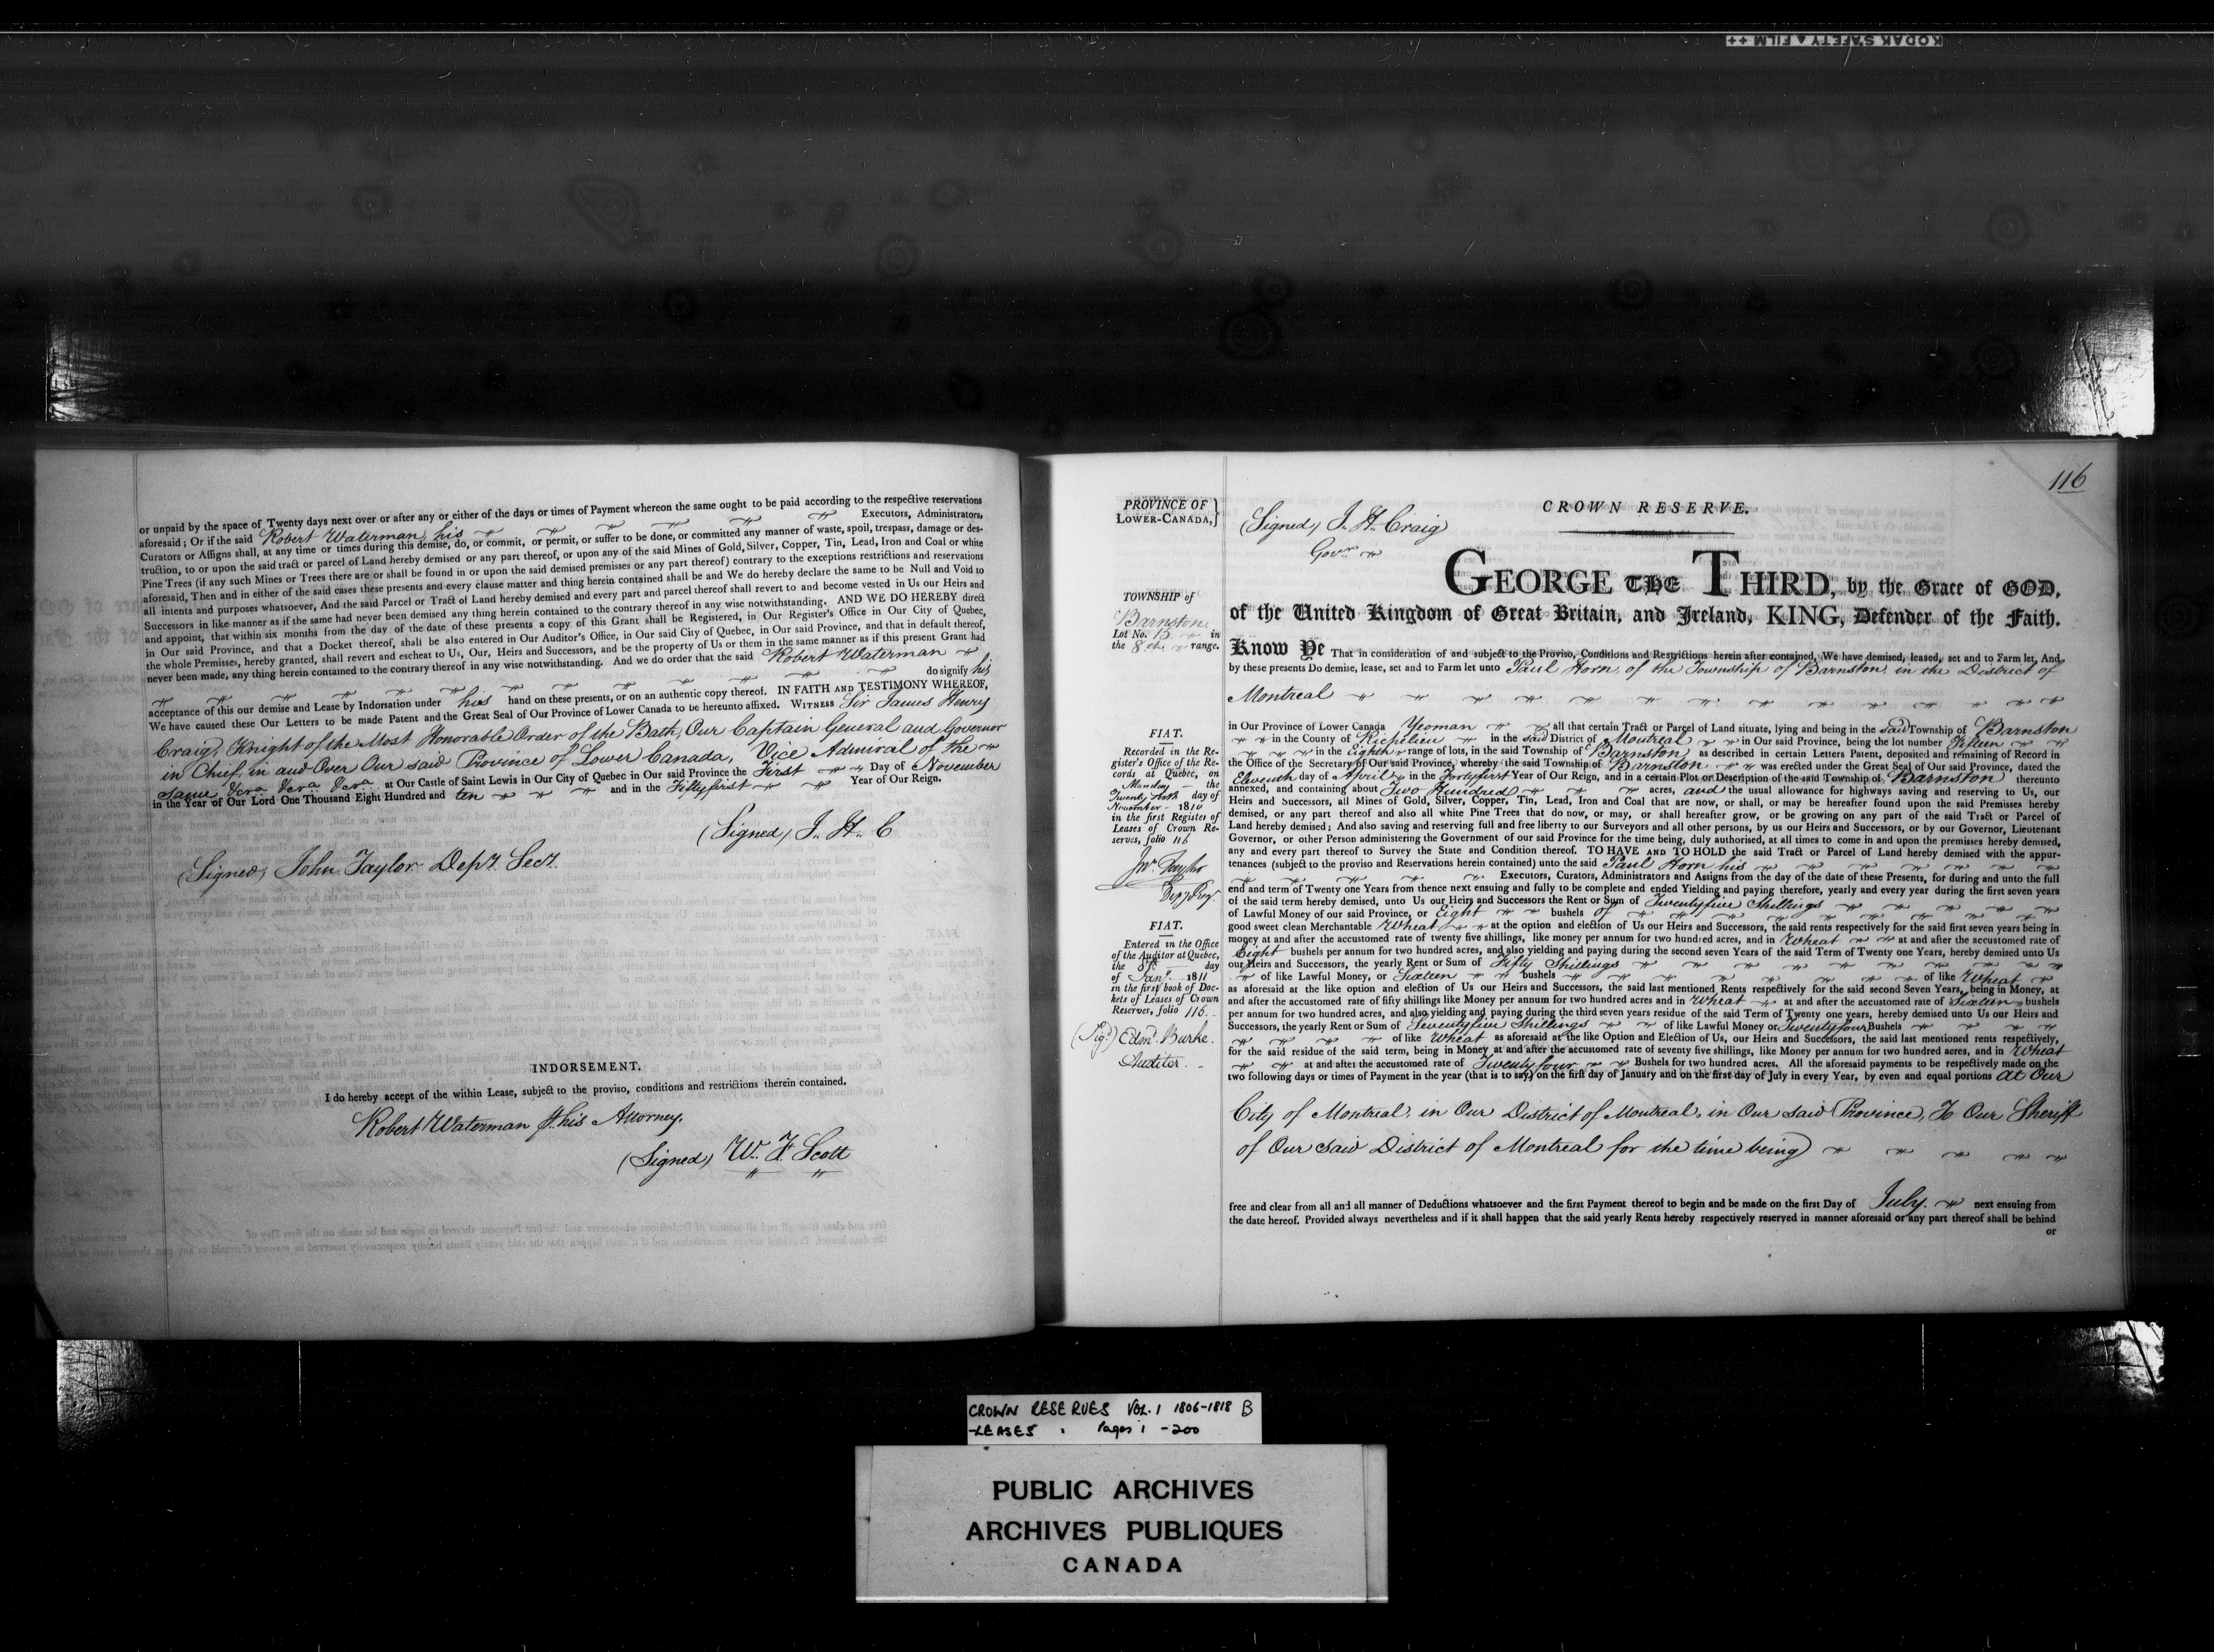 KODAK SAFETY FILM ++
or unpaid by the space of Twenty days next over or after any or either of the days or times of Payment whereon the same ought to be paid according to the respective reservations
aforesaid; Or if the said Robert Waterman, his Executors, Administrators,
Curators or Assigns shall, at any time or times during this demise, do, or commit, or permit, or suffer to be done, or committed any manner of waste, spoil, trespass, damage or des-
truction, to or upon the said tract or parcel of Land hereby demised or any part thereof, or upon any of the said Mines of Gold, Silver, Copper, Tin, Lead, Iron and Coal or white
Pine Trees (if any such Mines or Trees there are or shall be found in or upon the said demised premises or any part thereof) contrary to the exceptions restrictions and reservations
aforesaid, Then and in either of the said cases these presents and every clause matter and thing herein contained shall be and We do hereby declare the same to be Null and Void to
all intents and purposes whatsoever, And the said Parcel or Tract of Land hereby demised and every part and parcel thereof shall revert to and become vested in Us our Heirs and
Successors in like manner as if the same had never been demised any thing herein contained to the contrary thereof in any wise notwithstanding. AND WE DO HEREBY direct
and appoint, that within six months from the day of the date of these presents a copy of this Grant shall be Registered, in Our Register's Office in Our City of Quebec,
in Our said Province, and that a Docket thereof, shall be also entered in Our Auditor's Office, in Our said City of Quebec, in Our said Province, and that in default thereof,
the whole Premises, hereby granted, shall revert and escheat to Us, Our, Heirs and Successors, and be the property of Us or them in the same manner as if this present Grant had
never been made, any thing herein contained to the contrary thereof in any wise notwithstanding. And we do order that the said Robert Waterman
do signify his
acceptance of this our demise and Lease by Indorsation under his hand on these presents, or on an authentic copy thereof. IN FAITH AND TESTIMONY WHEREOF,
We have caused these Our Letters to be made Patent and the Great Seal of Our Province of Lower Canada to be hereunto affixed. WITNESS Sir James Henry
Craig, Knight of the Most Honorable Order of the Bath, Our Captain General and Governor
in Chief, in and Over Our said Province of Lower Canada, Vice Admiral of the
same, &c.ra &c.ra &c.ra at Our Castle of Saint Lewis in Our City of Quebec in Our said Province the First Day of November
in the Year of Our Lord One Thousand Eight Hundred and ten and in the Fifty first Year of Our Reign.
(Signed) J. H. C
(Signed) John Taylor Depy. Secy.
INDORSEMENT.
I do hereby accept of the within Lease, subject to the proviso, conditions and restrictions therein contained.
Robert Waterman p. his Attorney.
(Signed) W. F. Scott
116
PROVINCE OF
LOWER-CANADA,
(Signed) J. H. Craig
Govr.
CROWN RESERVE.
TOWNSHIP of
Barnston
Lot No. 15. in
the 8th. range.
FIAT.
Recorded in the Re-
gister's Office of the Re-
cords at Quebec, on
Monday the
Twenty sixth day of
November 1810
in the first Register of
Leases of Crown Re-
serves, folio 116
Jno. Taylor
Depy. Reg.
FIAT.
Entered in the Office
of the Auditor at Quebec,
the day
of Jany. 1811
in the first book of Doc-
kets of Leases of Crown
Reserves, folio 116.
(Sig.) Edm. Burke.
Auditor.
GEORGE THE THIRD, by the Grace of GOD,
of the United Kingdom of Great Britain, and Ireland, KING, Defender of the Faith.
Know Ye That in consideration of and subject to the Proviso, Conditions and Restrictions herein after contained, We have demised, leased, set and to Farm let, And
by these presents Do demise, lease, set and to Farm let unto Paul Horn, of the Township of Barnston, in the District of
Montreal
in Our Province of Lower Canada Yeoman all that certain Tract or Parcel of Land situate, lying and being in the said Township of Barnston
in the County of Richelieu in the said District of Montreal in Our said Province, being the lot number Fifteen
in the Eighth range of lots, in the said Township of Barnston as described in certain Letters Patent, deposited and remaining of Record in
the Office of the Secretary of Our said Province, whereby the said Township of Barnston was erected under the Great Seal of Our said Province, dated the
Eleventh day of April in the Forty first Year of Our Reign, and in a certain Plot or Description of the said Township of Barnston thereunto
annexed, and containing about Two Hundred acres, and the usual allowance for highways saving and reserving to Us, our
Heirs and Successors, all Mines of Gold, Silver, Copper, Tin, Lead, Iron and Coal that are now, or shall, or may be hereafter found upon the said Premises hereby
demised, or any part thereof and also all white Pine Trees that do now, or may, or shall hereafter grow, or be growing on any part of the said Tract or Parcel of
Land hereby demised; And also saving and reserving full and free liberty to our Surveyors and all other persons, by us our Heirs and Successors, or by our Governor, Lieutenant
Governor, or other Person administering the Government of our said Province for the time being, duly authorised, at all times to come in and upon the premises hereby demised,
any and every part thereof to Survey the State and Condition thereof. TO HAVE AND TO HOLD the said Tract or Parcel of Land hereby demised with the appur-
tenances (subject to the proviso and Reservations herein contained) unto the said Paul Horn his
Executors, Curators, Administrators and Assigns from the day of the date of these Presents, for during and unto the full
end and term of Twenty one Years from thence next ensuing and fully to be complete and ended Yielding and paying therefore, yearly and every year during the first seven years
of the said term hereby demised, unto Us our Heirs and Successors the Rent or Sum of Twenty five Shillings
of Lawful Money of our said Province, or Eight bushels of
good sweet clean Merchantable Wheat at the option and election of Us our Heirs and Successors, the said rents respectively for the said first seven years being in
money at and after the accustomed rate of twenty five shillings, like money per annum for two hundred acres, and in Wheat at and after the accustomed rate of
Eight bushels per annum for two hundred acres, and also yielding and paying during the second seven Years of the said Term of Twenty one Years, hereby demised unto Us
our Heirs and Successors, the yearly Rent or Sum of Fifty Shillings
of like Lawful Money, or Sixteen bushels of like Wheat
as aforesaid at the like option and election of Us our Heirs and Successors, the said last mentioned Rents respectively for the said second Seven Years, being in Money, at
and after the accustomed rate of fifty shillings like Money per annum for two hundred acres and in Wheat at and after the accustomed rate of Sixteen bushels
per annum for two hundred acres, and also yielding and paying during the third seven years residue of the said Term of Twenty one years, hereby demised unto Us our Heirs and
Successors, the yearly Rent or Sum of Seventy five Shillings of like Lawful Money or Twenty four Bushels
of like Wheat as aforesaid at the like Option and Election of Us, our Heirs and Successors, the said last mentioned rents respectively,
for the said residue of the said term, being in Money at and after the accustomed rate of seventy five shillings, like Money per annum for two hundred acres, and in Wheat
at and after the accustomed rate of Twenty four Bushels for two hundred acres. All the aforesaid payments to be respectively made on the
two following days or times of Payment in the year (that is to say) on the first day of January and on the first day of July in every Year, by even and equal portions at Our
City of Montreal, in Our District of Montreal, in Our said Province, To Our Sheriff
of Our said District of Montreal for the time being
free and clear from all and all manner of Deductions whatsoever and the first Payment thereof to begin and be made on the first Day of July. next ensuing from
the date hereof. Provided always nevertheless and if it shall happen that the said yearly Rents hereby respectively reserved in manner aforesaid or any part thereof shall be behind
or
CROWN RESERVES VOL. 1 1806-1818 B
-LEASES . Pages 1 -200
PUBLIC ARCHIVES
ARCHIVES PUBLIQUES
CANADA